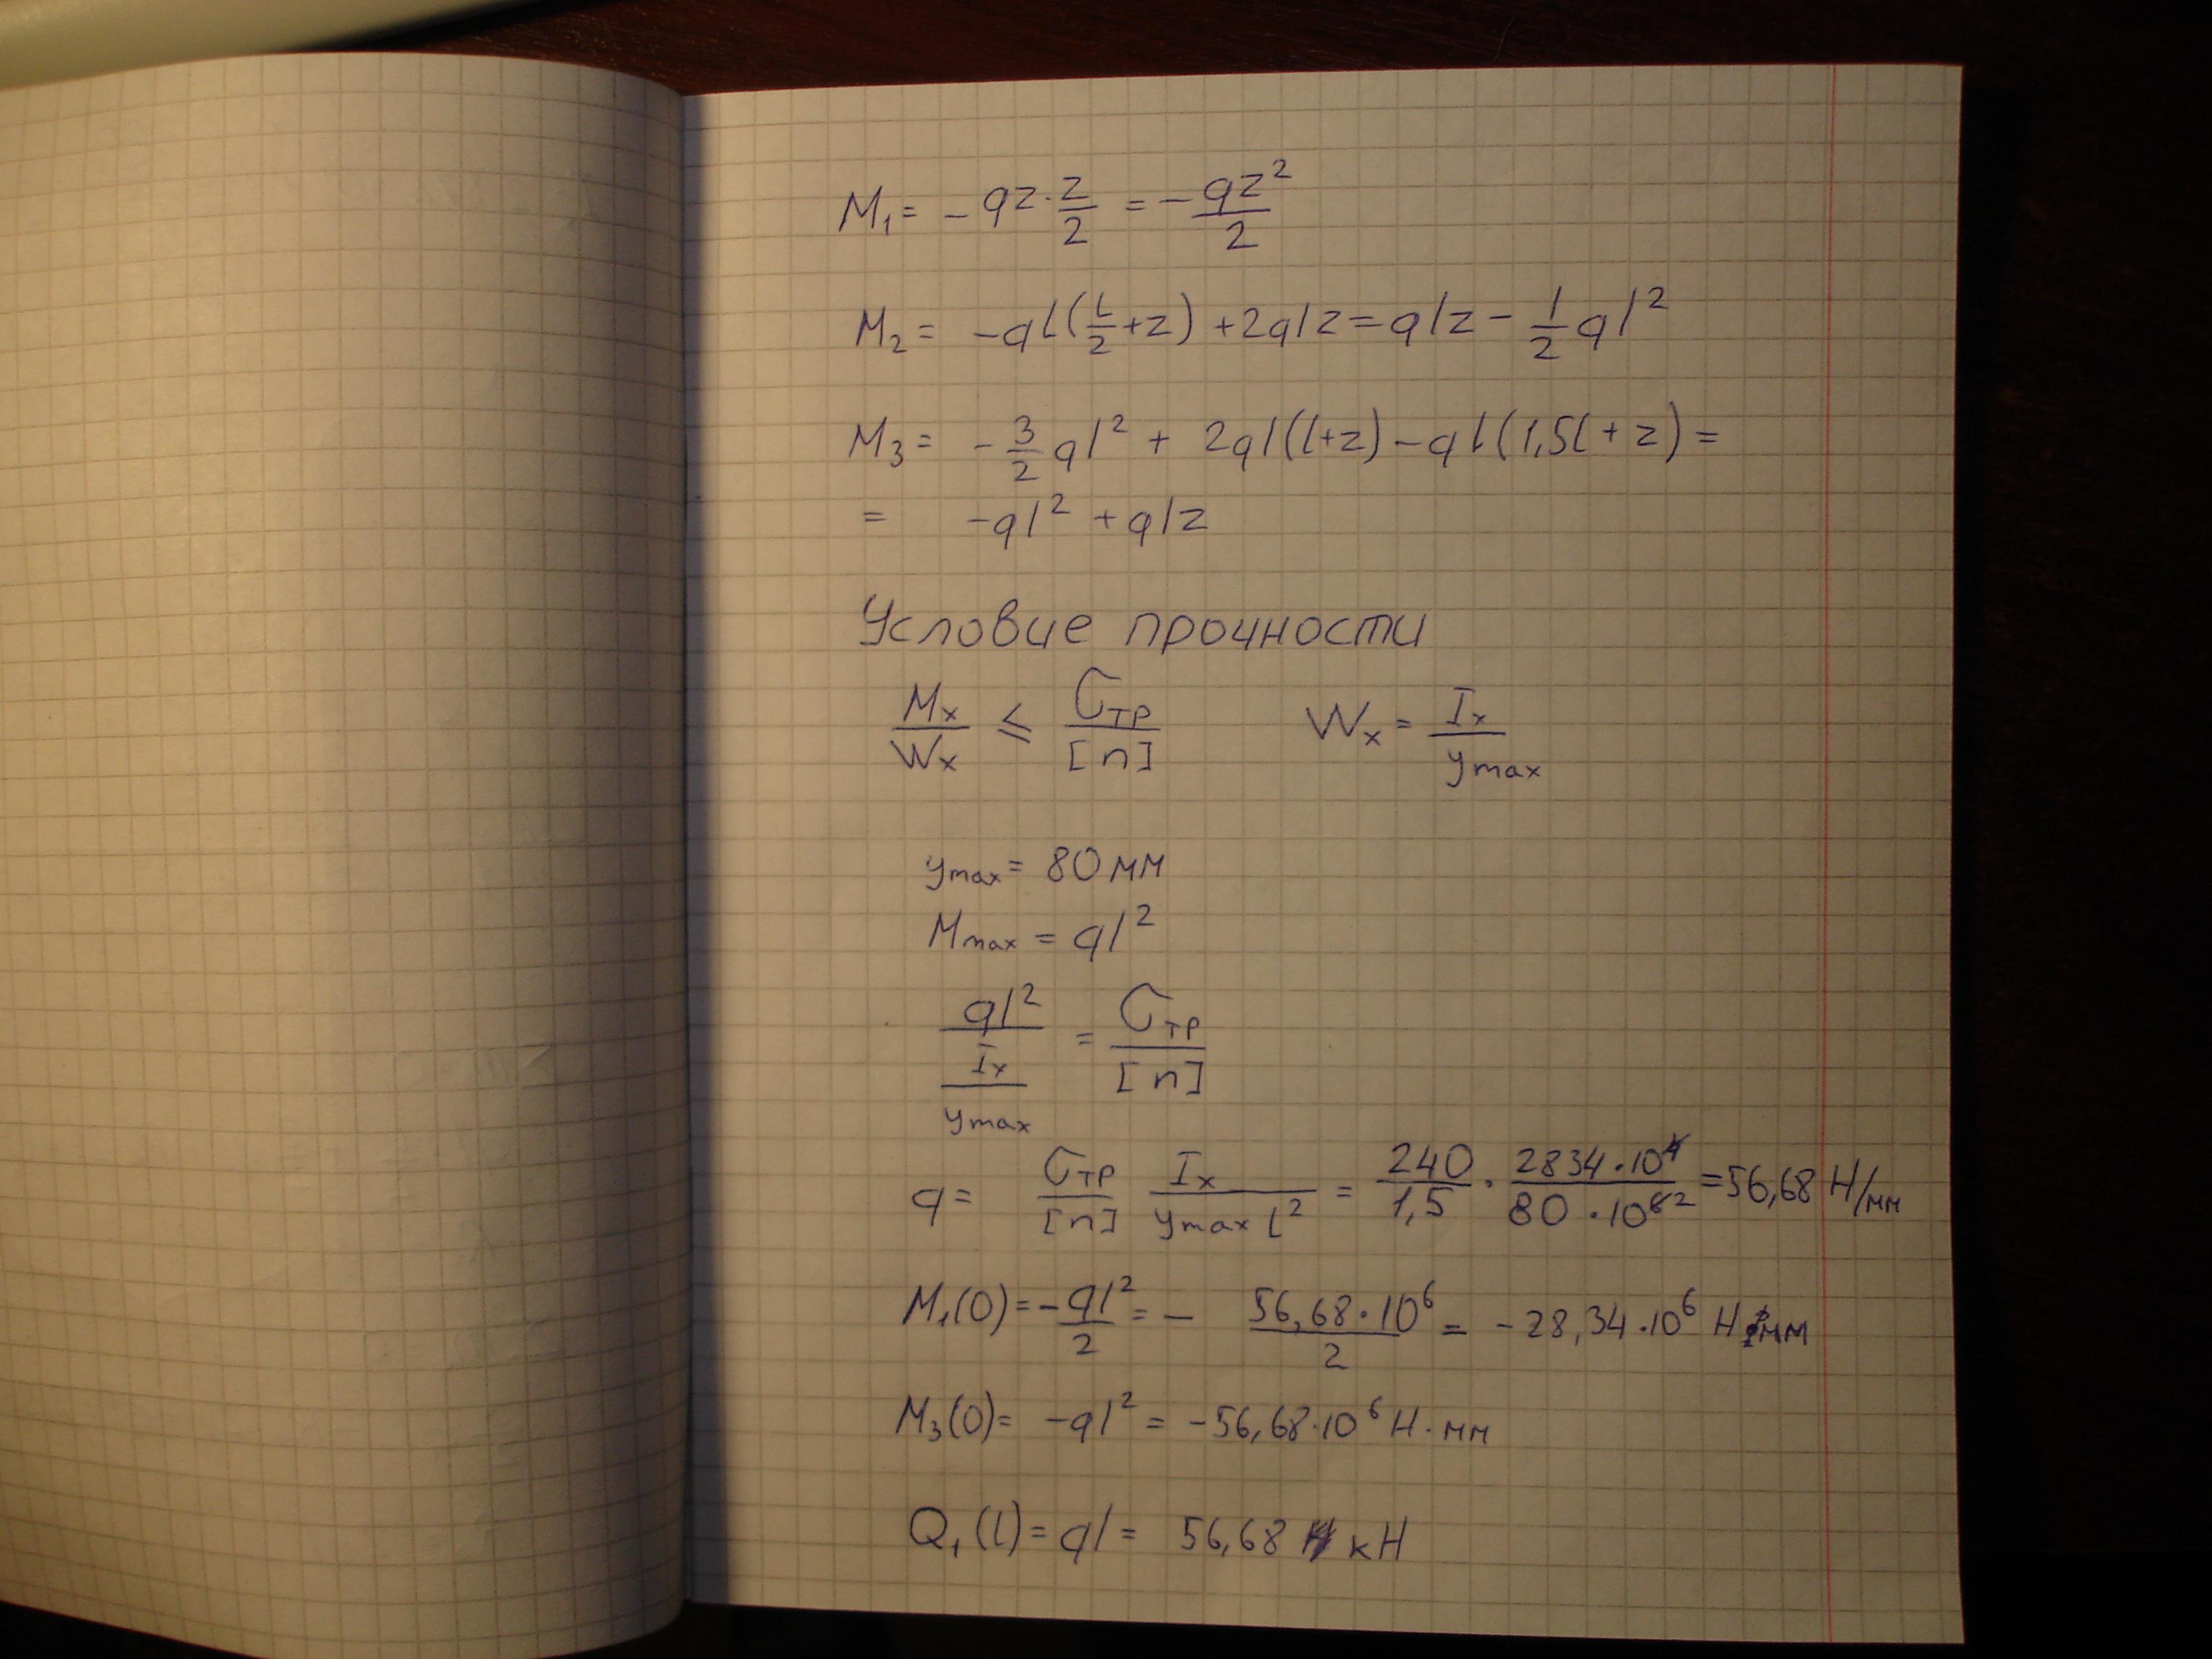 M₁ = - qz · z/2 = - qz²/2
M₂ = -ql(l/2 + z) + 2qlz = qlz - 1/2 ql²
M₃ = - 3/2 ql² + 2ql(l+z) - ql(1,5l + z) =
= -ql² + qlz
Условие прочности
Mx/Wx ≤ σтр/[n] Wx = Ix/ymax
ymax = 80 мм
Mmax = ql²
ql²/(Ix/ymax) = σтр/[n]
q = σтр/[n] Ix/(ymax l²) = 240/1,5 · 2834·10⁴/(80·10⁶²) = 56,68 Н/мм
M₁(0) = - ql²/2 = - 56,68·10⁶/2 = - 28,34·10⁶ Н·мм
M₃(0) = -ql² = -56,68·10⁶ Н·мм
Q₁(l) = ql = 56,68 кН